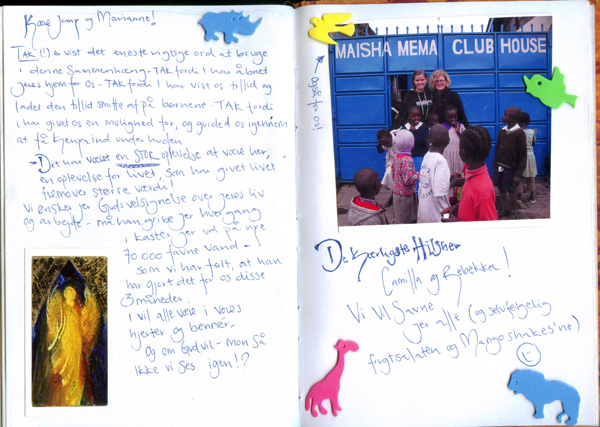 Kære Jimmy og Marianne!
TAK (!) er vist det eneste rigtige ord at bruge
i denne sammenhæng - TAK fordi I har åbnet
jeres hjem for os - TAK fordi I har vist os tillid og
ladet den tillid smitte af på børnene - TAK fordi
I har givet os en mulighed for, og guided os igennem
at få Kenya ind under huden.
- Det har været en STOR oplevelse at være her,
en oplevelse for livet, som har givet livet
fremover større værdi!
Vi ønsker jer Guds velsignelse over jeres liv
og arbejde - må han gribe jer hver gang
I kaster jer ud på nye
70 000 favne vand -
som vi har følt, at han
har gjort det for os disse
3 måneder.
I vil alle være i vores
hjerter og bønner -
Og om Gud vil - mon så
ikke vi ses igen!?
også for os!
MAISHA MEMA CLUB HOUSE
De Kærligste Hilsner
Camilla og Rebekka!
Vi vil savne
jer alle (og selvfølgelig
frugtsalaten og Mangoshakes'ne)